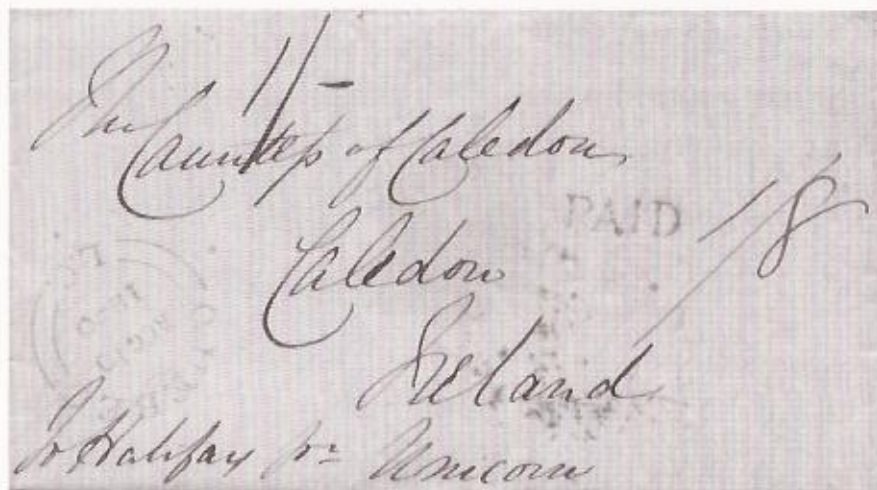 1/-
The
Countess of Caledon
PAID 1/8
Caledon
Ireland
To Halifax pr Unicorn